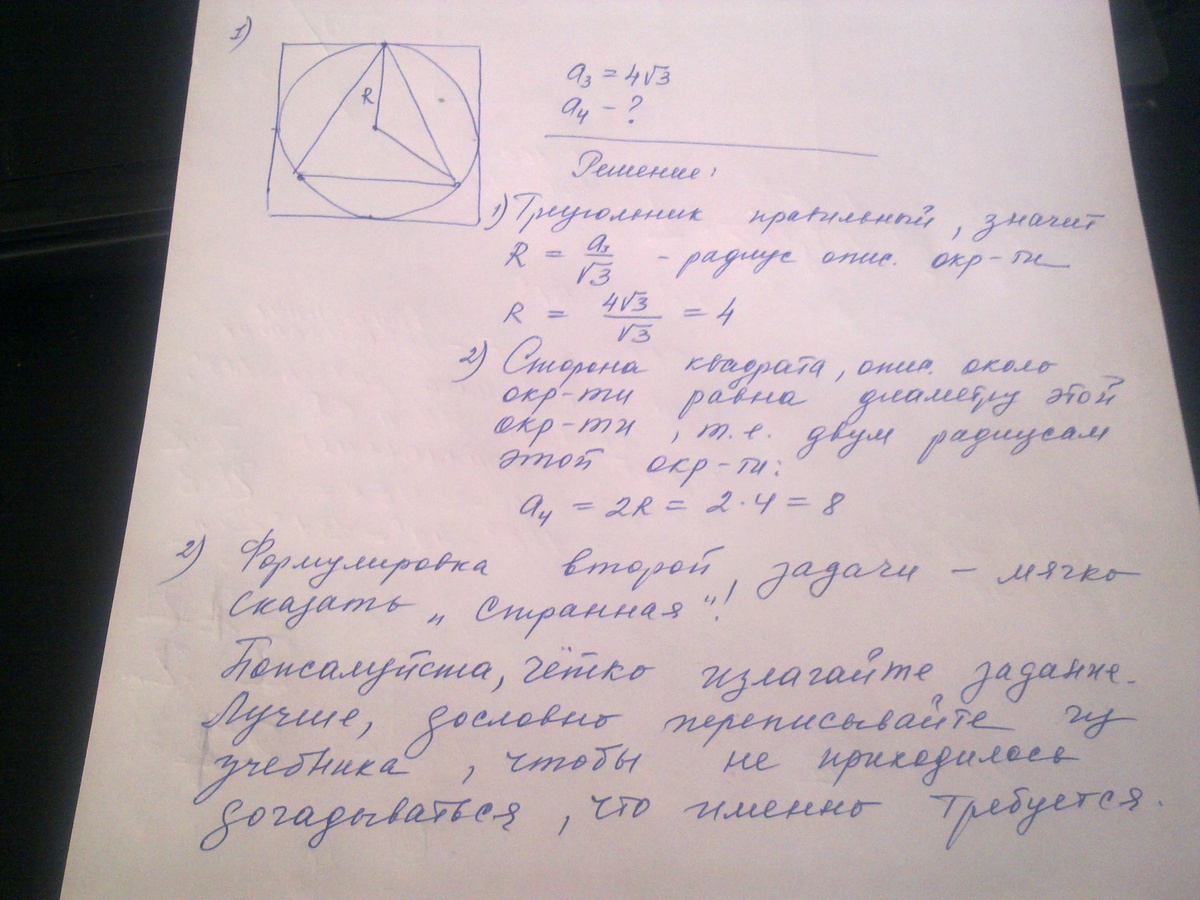 1)
R
a₃ = 4√3
a₄ - ?
Решение:
1) Треугольник правильный, значит
R = a₃/√3 - радиус опис. окр-ти
R = 4√3/√3 = 4
2) Сторона квадрата, опис. около
окр-ти равна диаметру этой
окр-ти, т.е. двум радиусам
этой окр-ти:
a₄ = 2R = 2·4 = 8
2) Формулировка второй задачи – мягко
сказать „странная“!
Пожалуйста, чётко излагайте задание.
Лучше, дословно переписывайте из
учебника, чтобы не приходилось
догадываться, что именно требуется.